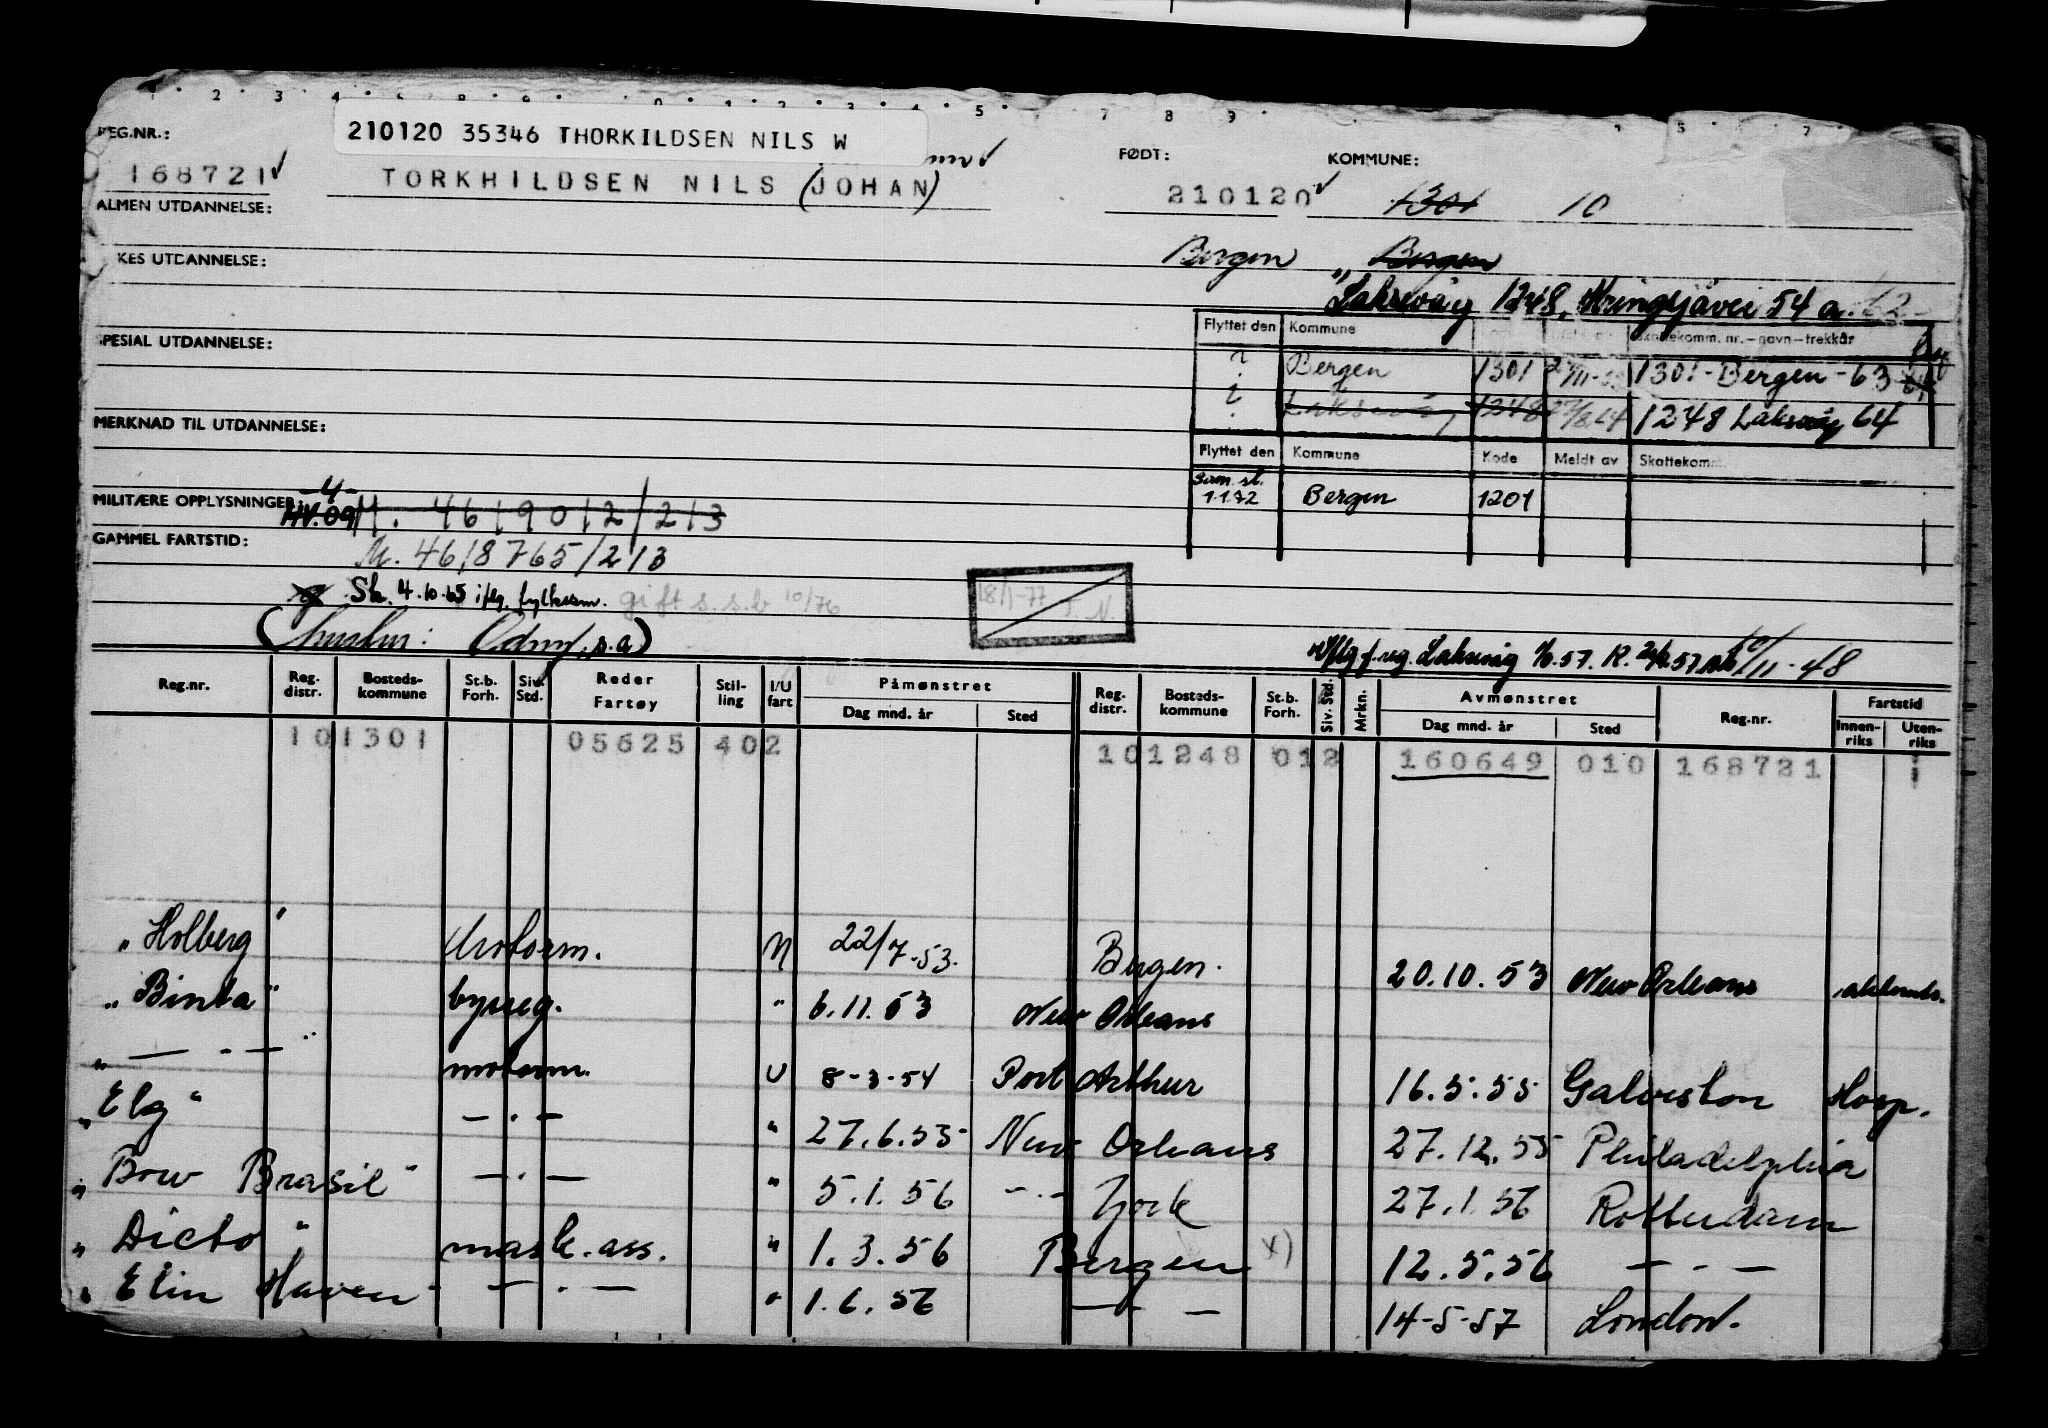 REG.NR.:
210120 35346 THORKILDSEN NILS W
FØDT:
KOMMUNE:
168721
TORKHILDSEN NILS (JOHAN)
210120
1301 10
ALMEN UTDANNELSE:
Bergen " Bergen
KES UTDANNELSE:
Laksevåg 1248, Kringsjåvei 54 a. 62
Flyttet den Kommune Skattekomm. nr.-navn-trekkår
SPESIAL UTDANNELSE:
? Bergen 1301 1301-Bergen-63
? Laksevåg 1248 1248 Laksevåg 64
MERKNAD TIL UTDANNELSE:
Flyttet den Kommune Kode Meldt av Skattekomm
1.1.72 Bergen 1201
MILITÆRE OPPLYSNINGER: -4-
HV.09 M. 4619012/213
GAMMEL FARTSTID:
M. 4618765/213
g Sk. 4.10.65 iflg. fylkesm. gift s.s.b 10/76
18/1-77 N.
(hustru: s.a)
f.reg. Laksevåg 57. R. 57 10/11-48
Reg.nr. Reg. distr. Bosteds-kommune St.b. Forh. Siv. Std. Reder Fartøy Stil-ling I/U fart Påmønstret Dag mnd. år Sted Reg. distr. Bosteds-kommune St.b. Forh. Siv. Std. Mrkn. Avmønstret Dag mnd. år Sted Reg.nr. Fartstid Innen-riks Uten-riks
101301 05625 402 101248 012 160649 010 168721
"Holberg" Motorm. N 22/7-53. Bergen. 20.10.53 New Orleans
"Binta" bysseg. " 6.11.53 New Orleans
" — . — " motorm. U 8-3-54 Port Arthur 16.5.55 Galveston Hosp.
"Elg" — . — " 27.6.55 New Orleans 27.12.55 Philadelphia
"Bow Brasil" — . — " 5.1.56 — . — York 27.1.56 Rotterdam
"Dicto" mask. ass. " 1.3.56 Bergen x) 12.5.56 — . —
"Elin Haven" — . — " 1.6.56 — — 14-5-57 London.